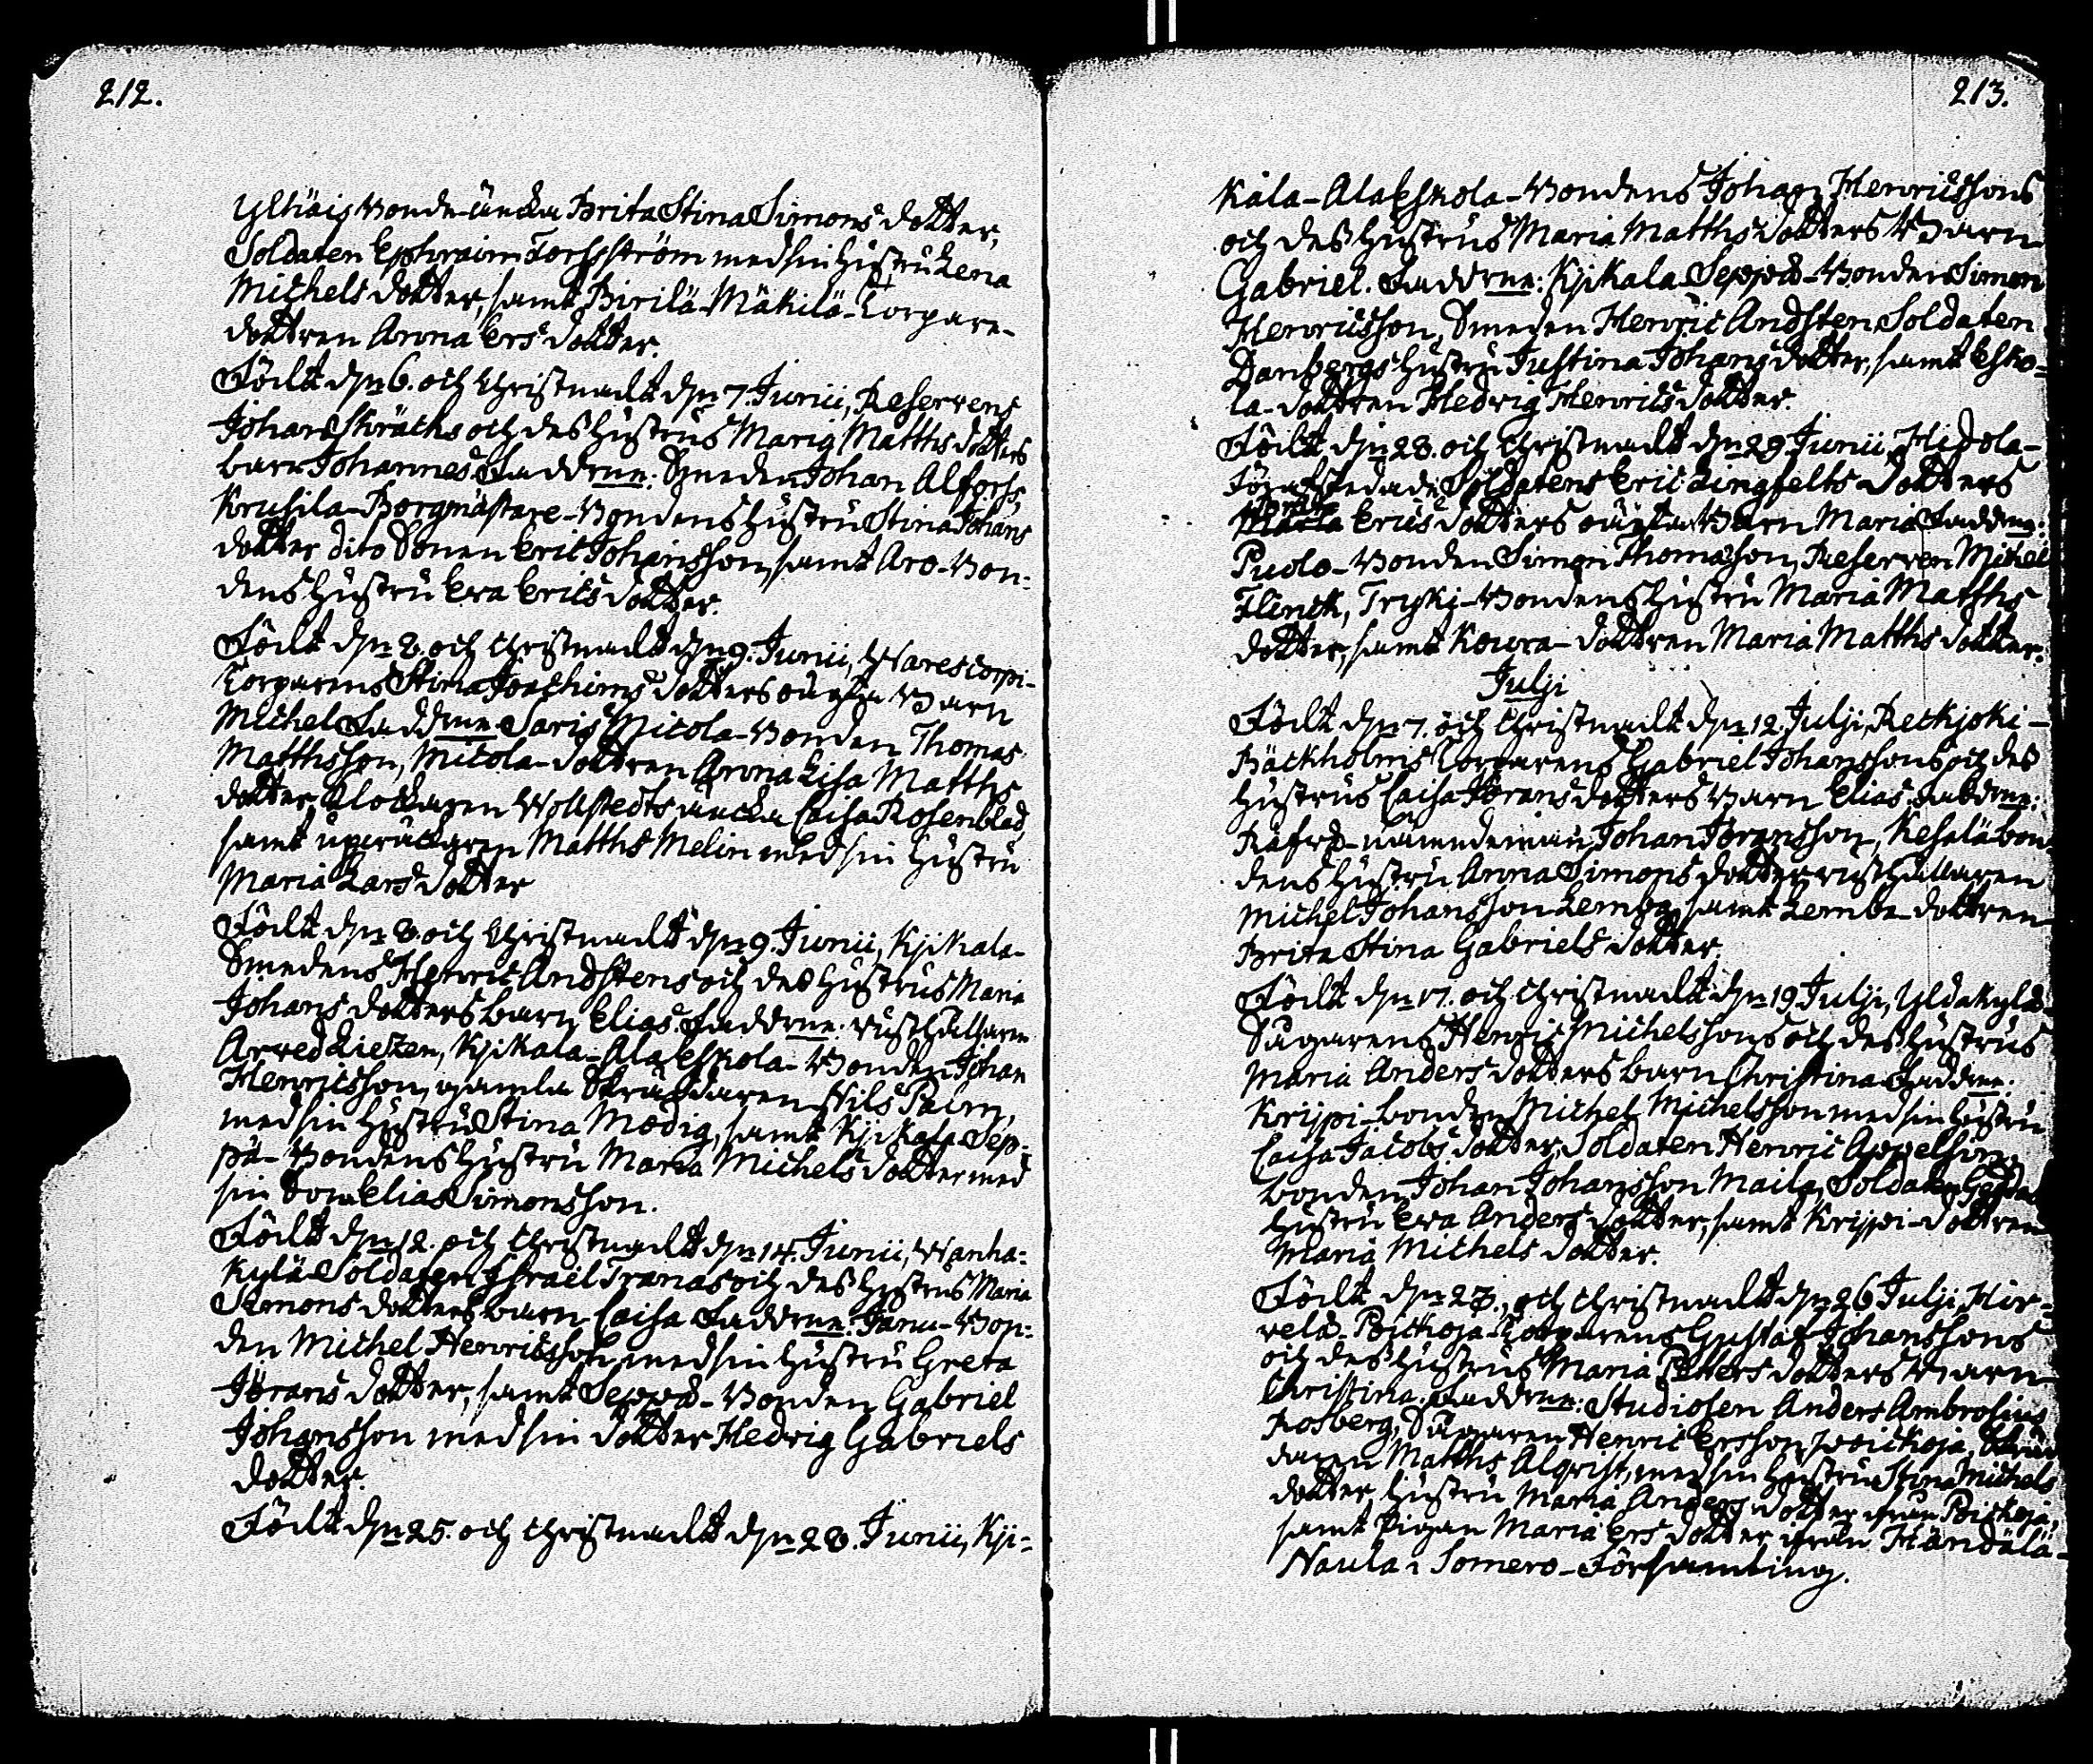 212.
Yltöis Bonde-änckа Brita Stina Simons dotter,
Soldaten Ephraim Forsström med sin hustru Lena
Michels dotter, samt Pirilä-Mäkilä-Torpare-
dottren Anna Ers dotter.
Födt d:n 6. och Christnadt d:n 7. Junii, Reserrens
Johan Skräths och des hustrus Maria Matths dotters
barn Johannes. Faddrne: Smeden Johan Alforss,
Krusila-Borgmästare-Bondens hustru Stina Johans
dotter dito Sonen Eric Johansson, samt Aro-Bon-
dens hustru Eva Erics dotter.
Födt d:n 8. och Christnadt d:n 9. Junii, Warescorpi-
Torparens Stina Joachims dotters oäkta Barn
Michel. Faddrne Saris Nicola-Bonden Thomas
Matthsson, Nicola-dottren Anna Lisa Matths
dotter, Klockaren Wollstedts äncka Caisa Rosenblad,
samt Matths Melin med sin hustru
Maria Lars dotter
Födt d:n 8. och Christnadt d:n 9. Junii, Kjikala-
Smedens Henric Andstens och des hustrus Maria
Johans dotters barn Elias. Faddrne: rusthållaren
Arved Lietzen, Kjikala-AlaEskola-Bonden Johan
Henricsson, gamla Skräddaren Nils Palm,
med sin hustru Stina Modig, samt Kjikala Sep-
pä-Bondens hustru Maria Michels dotter med
sin Son Elias Simonsson.
Födt d:n 12. och Christnadt d:n 14. Junii, Wanha-
kylä Soldaten Israel Tranas och des hustrus Maria
Simons dotters barn Caisa Faddrne: Janu-Bon-
den Michel Henricsson med sin hustru Greta
Jörans dotter, samt Seppä-Bonden Gabriel
Johansson med sin dotter Hedvig Gabriels
dotter.
Födt d:n 25. och Christnadt d:n 28. Junii, Kji-
213.
kala-AlaEskola-Bondens Johan Henricssons
och des hustrus Maria Matths dotters Barn
Gabriel. Faddrne: Kjikala Seppä-Bonden Simon
Henricsson, Smeden Henric Andsten, Soldaten
Danbergs hustru Justina Johans dotter, samt Esko-
la-dottren Hedvig Henrics dotter.
Födt d:n 28. och Christnadt d:n 29. Junii, Hidola-
Soldatens Eric Lingfelts Dotters
Erics dotters oäkta Barn Maria Faddrne:
Puolo-Bonden Simon Thomasson, Reserven Michel
Flinck, Tryki-Bondens hustru Maria Matths
dotter, samt Kowra-dottren Maria Matths dotter.
Julji
Födt d:n 7. och Christnadt d:n 12. Julji, Reckjoki-
Bäckholms Torparens Gabriel Johanssons och des
hustrus Caisa Jörans dotters Barn Elias. Faddrne:
nämndeman Johan Jöransson, Kesälä bon
dens hustru Anna Simons dotter rusthållaren
Michel Johansson Lemba, samt Lemba-dottren
Brita Stina Gabriels dotter.
Födt d:n 17. och Christnadt d:n 19. Julji, Yldäkylä-
Sågarens Henric Michelssons och des hustrus
Maria Anders dotters barn Christina Faddrne:
Krijpi-bonden Michel Michelsson med sin hustru
Caisa Jacobs dotter, Soldaten Henric Appelsin,
bonden Johan Johansson Maila, Soldaten
hustru Eva Anders dotter, samt Krijpi-dottren
Maria Michels dotter.
Födt d:n 23. och Christnadt d:n 26 Julji, Hir-
velä-Poickoja-Torparens Gustaf Johanssons
och des hustrus Maria Petters dotters Barn
Christina. Faddrne: Studiosen Anders Ambrosius
Rosberg, Sågaren Henric Ersson Poickoja, Skräd
daren Matths Alqvist, med sin hustru Stina Michels
dotter, hustru Maria Anders dotter ifrån Poickoja,
samt Pigan Maria Ers dotter ifrån Händälä-
Naula i Somero-Församling.